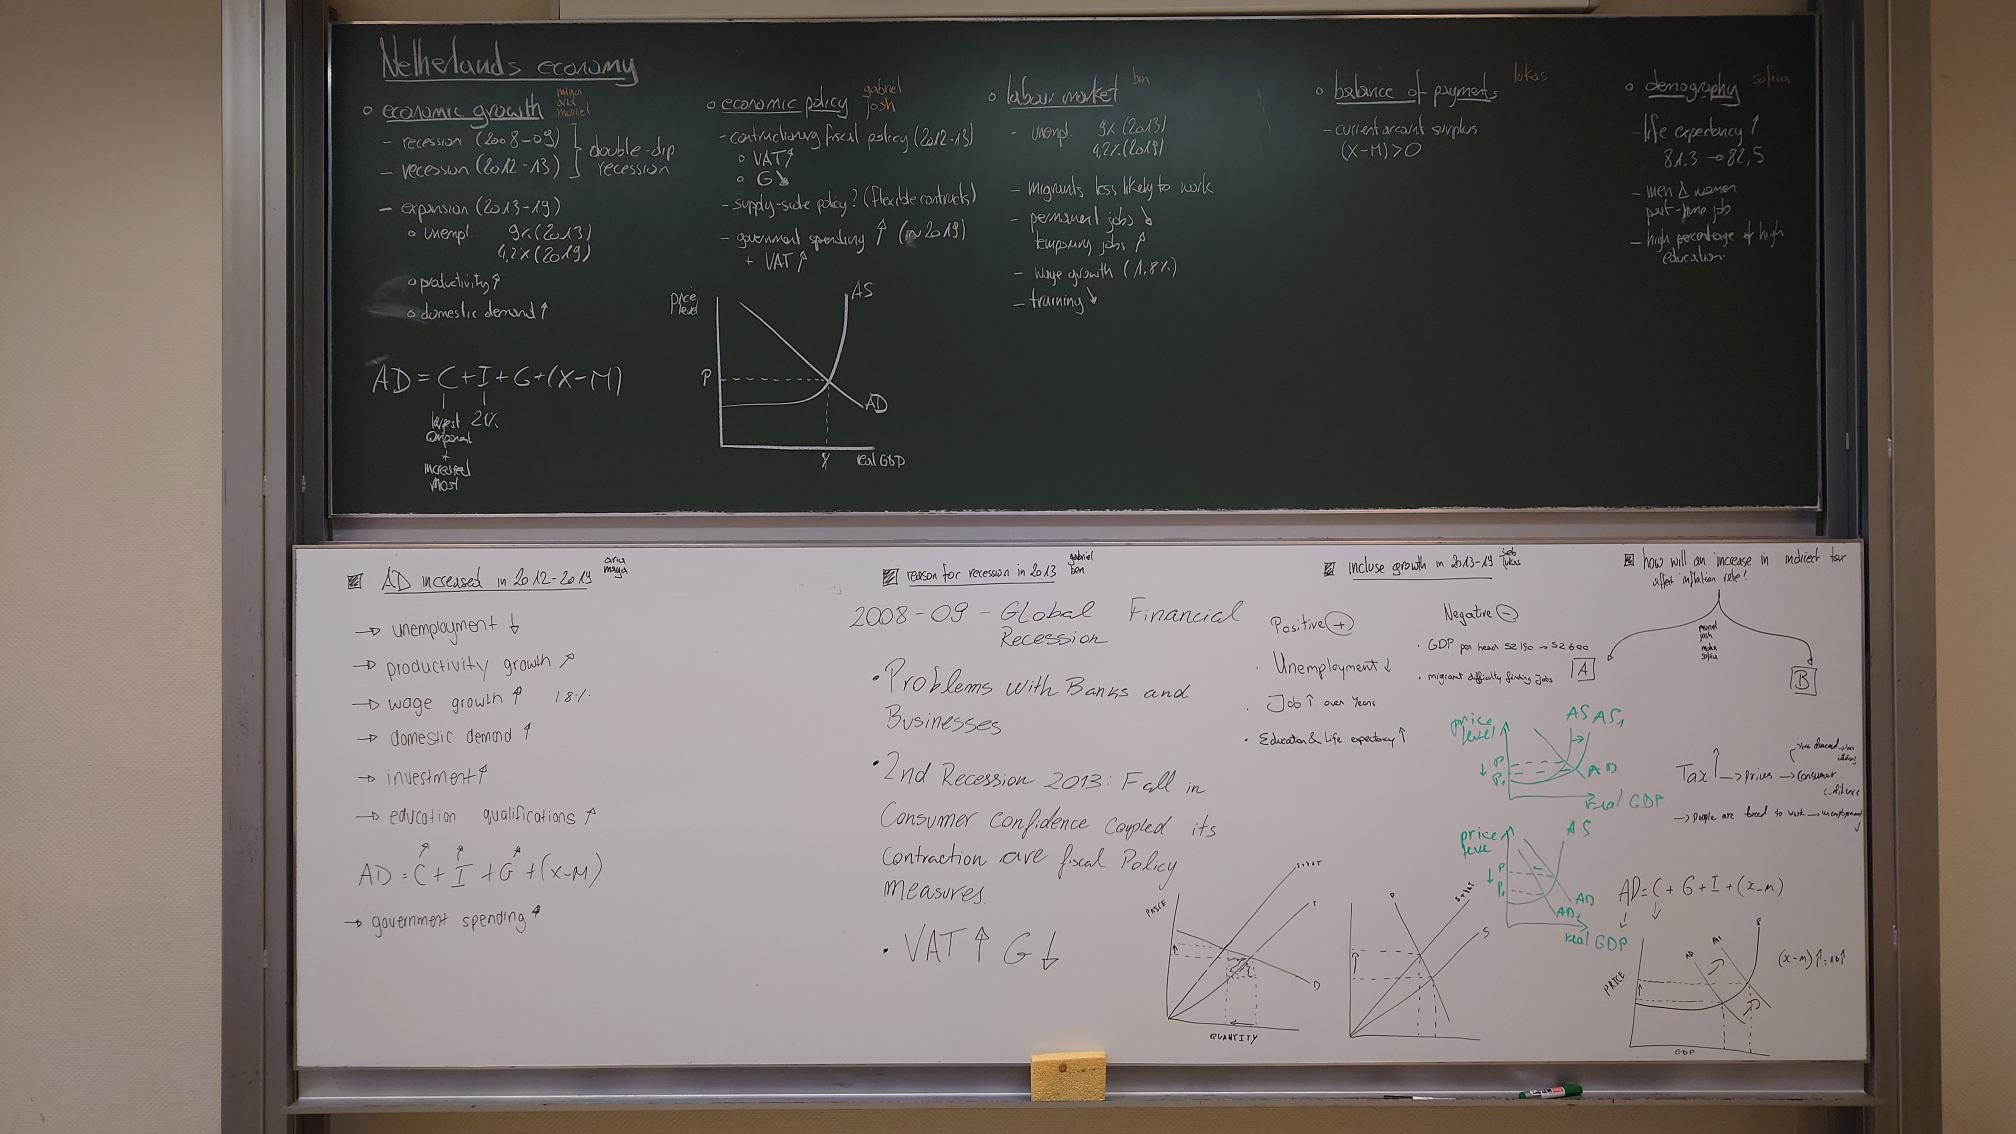 Netherlands economy
o economic growth
- recession (2008-09)
- recession (2012-13)
double-dip
recession
- expansion (2013-19)
o unempl. 9% (2013)
4,2% (2019)
o productivity ↑
o domestic demand ↑
AD = C+I+G+(X-M)
largest
+
increased
most
o economic policy
gabriel
josh
- contractionary fiscal policy (2012-13)
o VAT ↑
o G ↘
- supply-side policy? (flexible contracts)
- government spending ↑ (in 2019)
+ VAT ↑
Price
level
AS
P
AD
Y
real GDP
o labour market
ben
- unempl. 9% (2013)
4,2% (2019)
- migrants less likely to work
- permanent jobs ↘
temporary jobs ↗
- wage growth (1.8%)
- training ↘
o balance of payments
lukas
- current account surplus
(X-M) > 0
o demography
sofiia
- life expectancy ↑
81.3 → 82,5
- men Δ women
part-time job
- high percentage of high
education
AD increased in 2012-2019
→ unemployment ↓
→ productivity growth ↗
→ wage growth ↑ 1.8%
→ domestic demand ↑
→ investment ↑
→ education qualifications ↑
AD = C + I + G + (X-M)
→ government spending ↑
reason for recession in 2013
gabriel
ben
2008-09 - Global Financial
Recession
• Problems with Banks and
Businesses
• 2nd Recession 2013: Fall in
Consumer confidence coupled its
contraction are fiscal Policy
measures.
• VAT ↑ G ↓
PRICE
S+VAT
D
QUANTITY
incluse growth in 2013-19
seb
lukas
Positive (+)
• Unemployment ↓
• Job ↑ over Years
• Education & Life expectancy ↑
Negative (-)
• GDP per head 52150 → 52600
• migrant difficulty finding jobs
D
S+VAT
S
price
level
AS AS1
P
P1
AD
real GDP
price
level
AS
P
P1
AD
AD1
real GDP
how will an increase in indirect tax
affect inflation rate?
josh
A
B
Tax ↑ → Prices → Consumer
confidence
→ People are forced to work → unemployment
AD = C + G + I + (X-M)
PRICE
AD
GDP
(X-M)↑ : AD↑